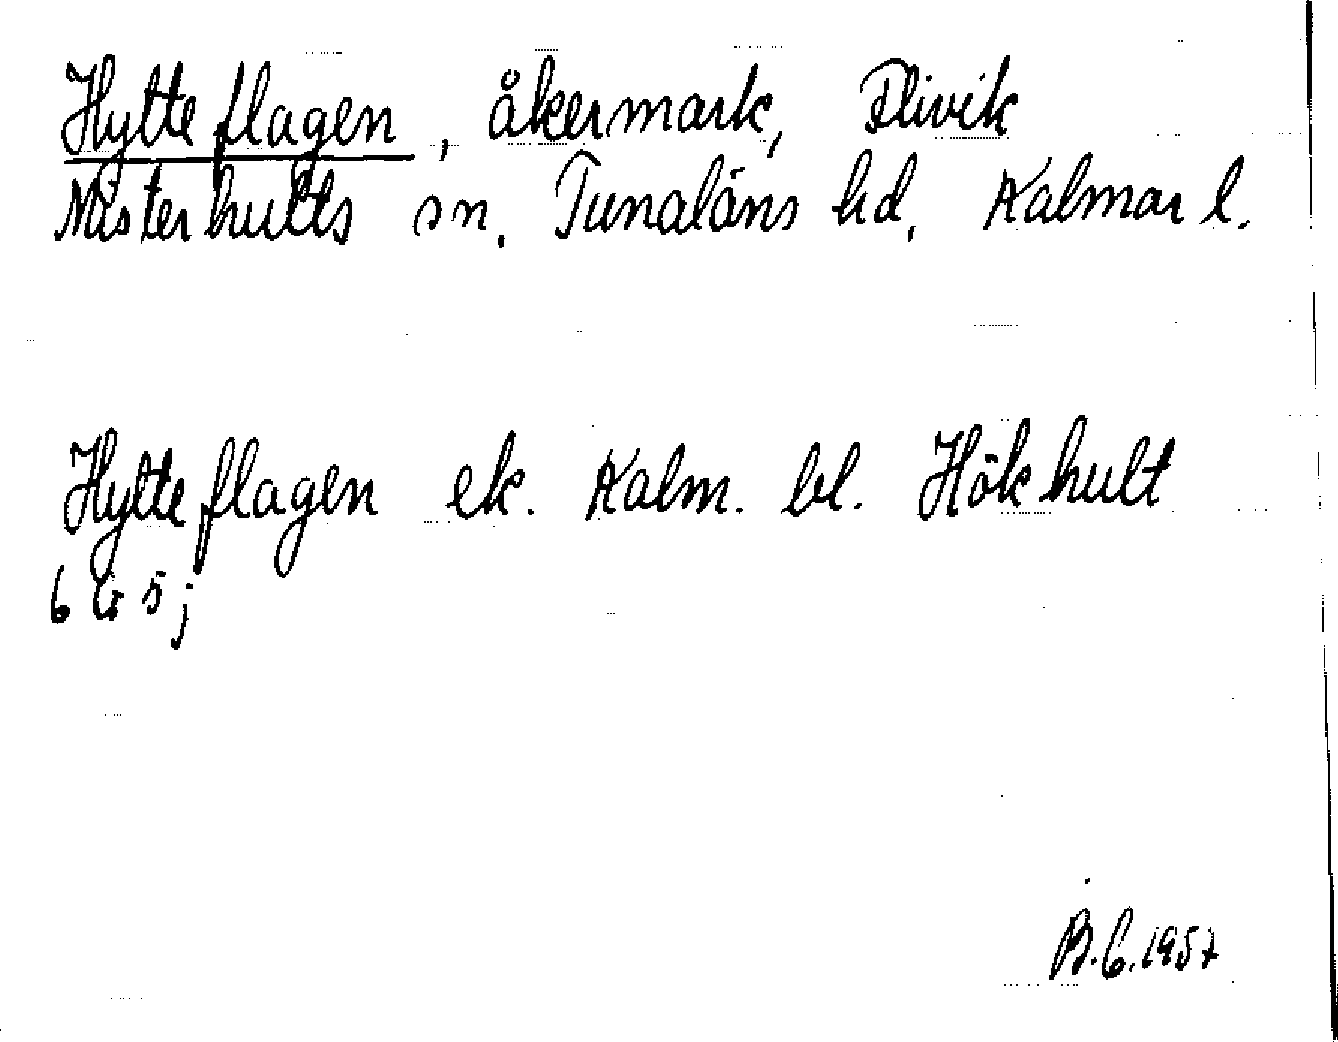 Hytteflagen, åkermark, Flivik
Misterhults sn. Tunaläns hd, Kalmar l.
Hytteflagen ek. Kalm. bl. Hökhult
6 G 5 j
B.C. 1957